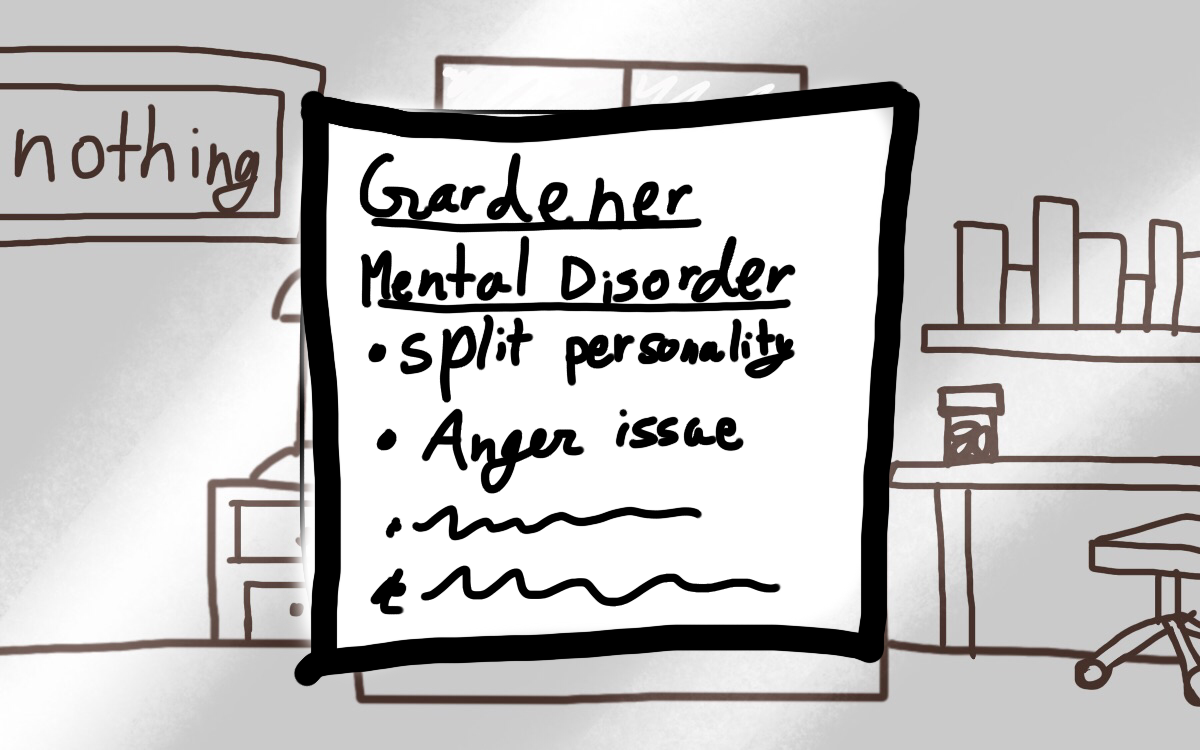 nothing
Gardener
Mental Disorder
• split personality
• Anger issue